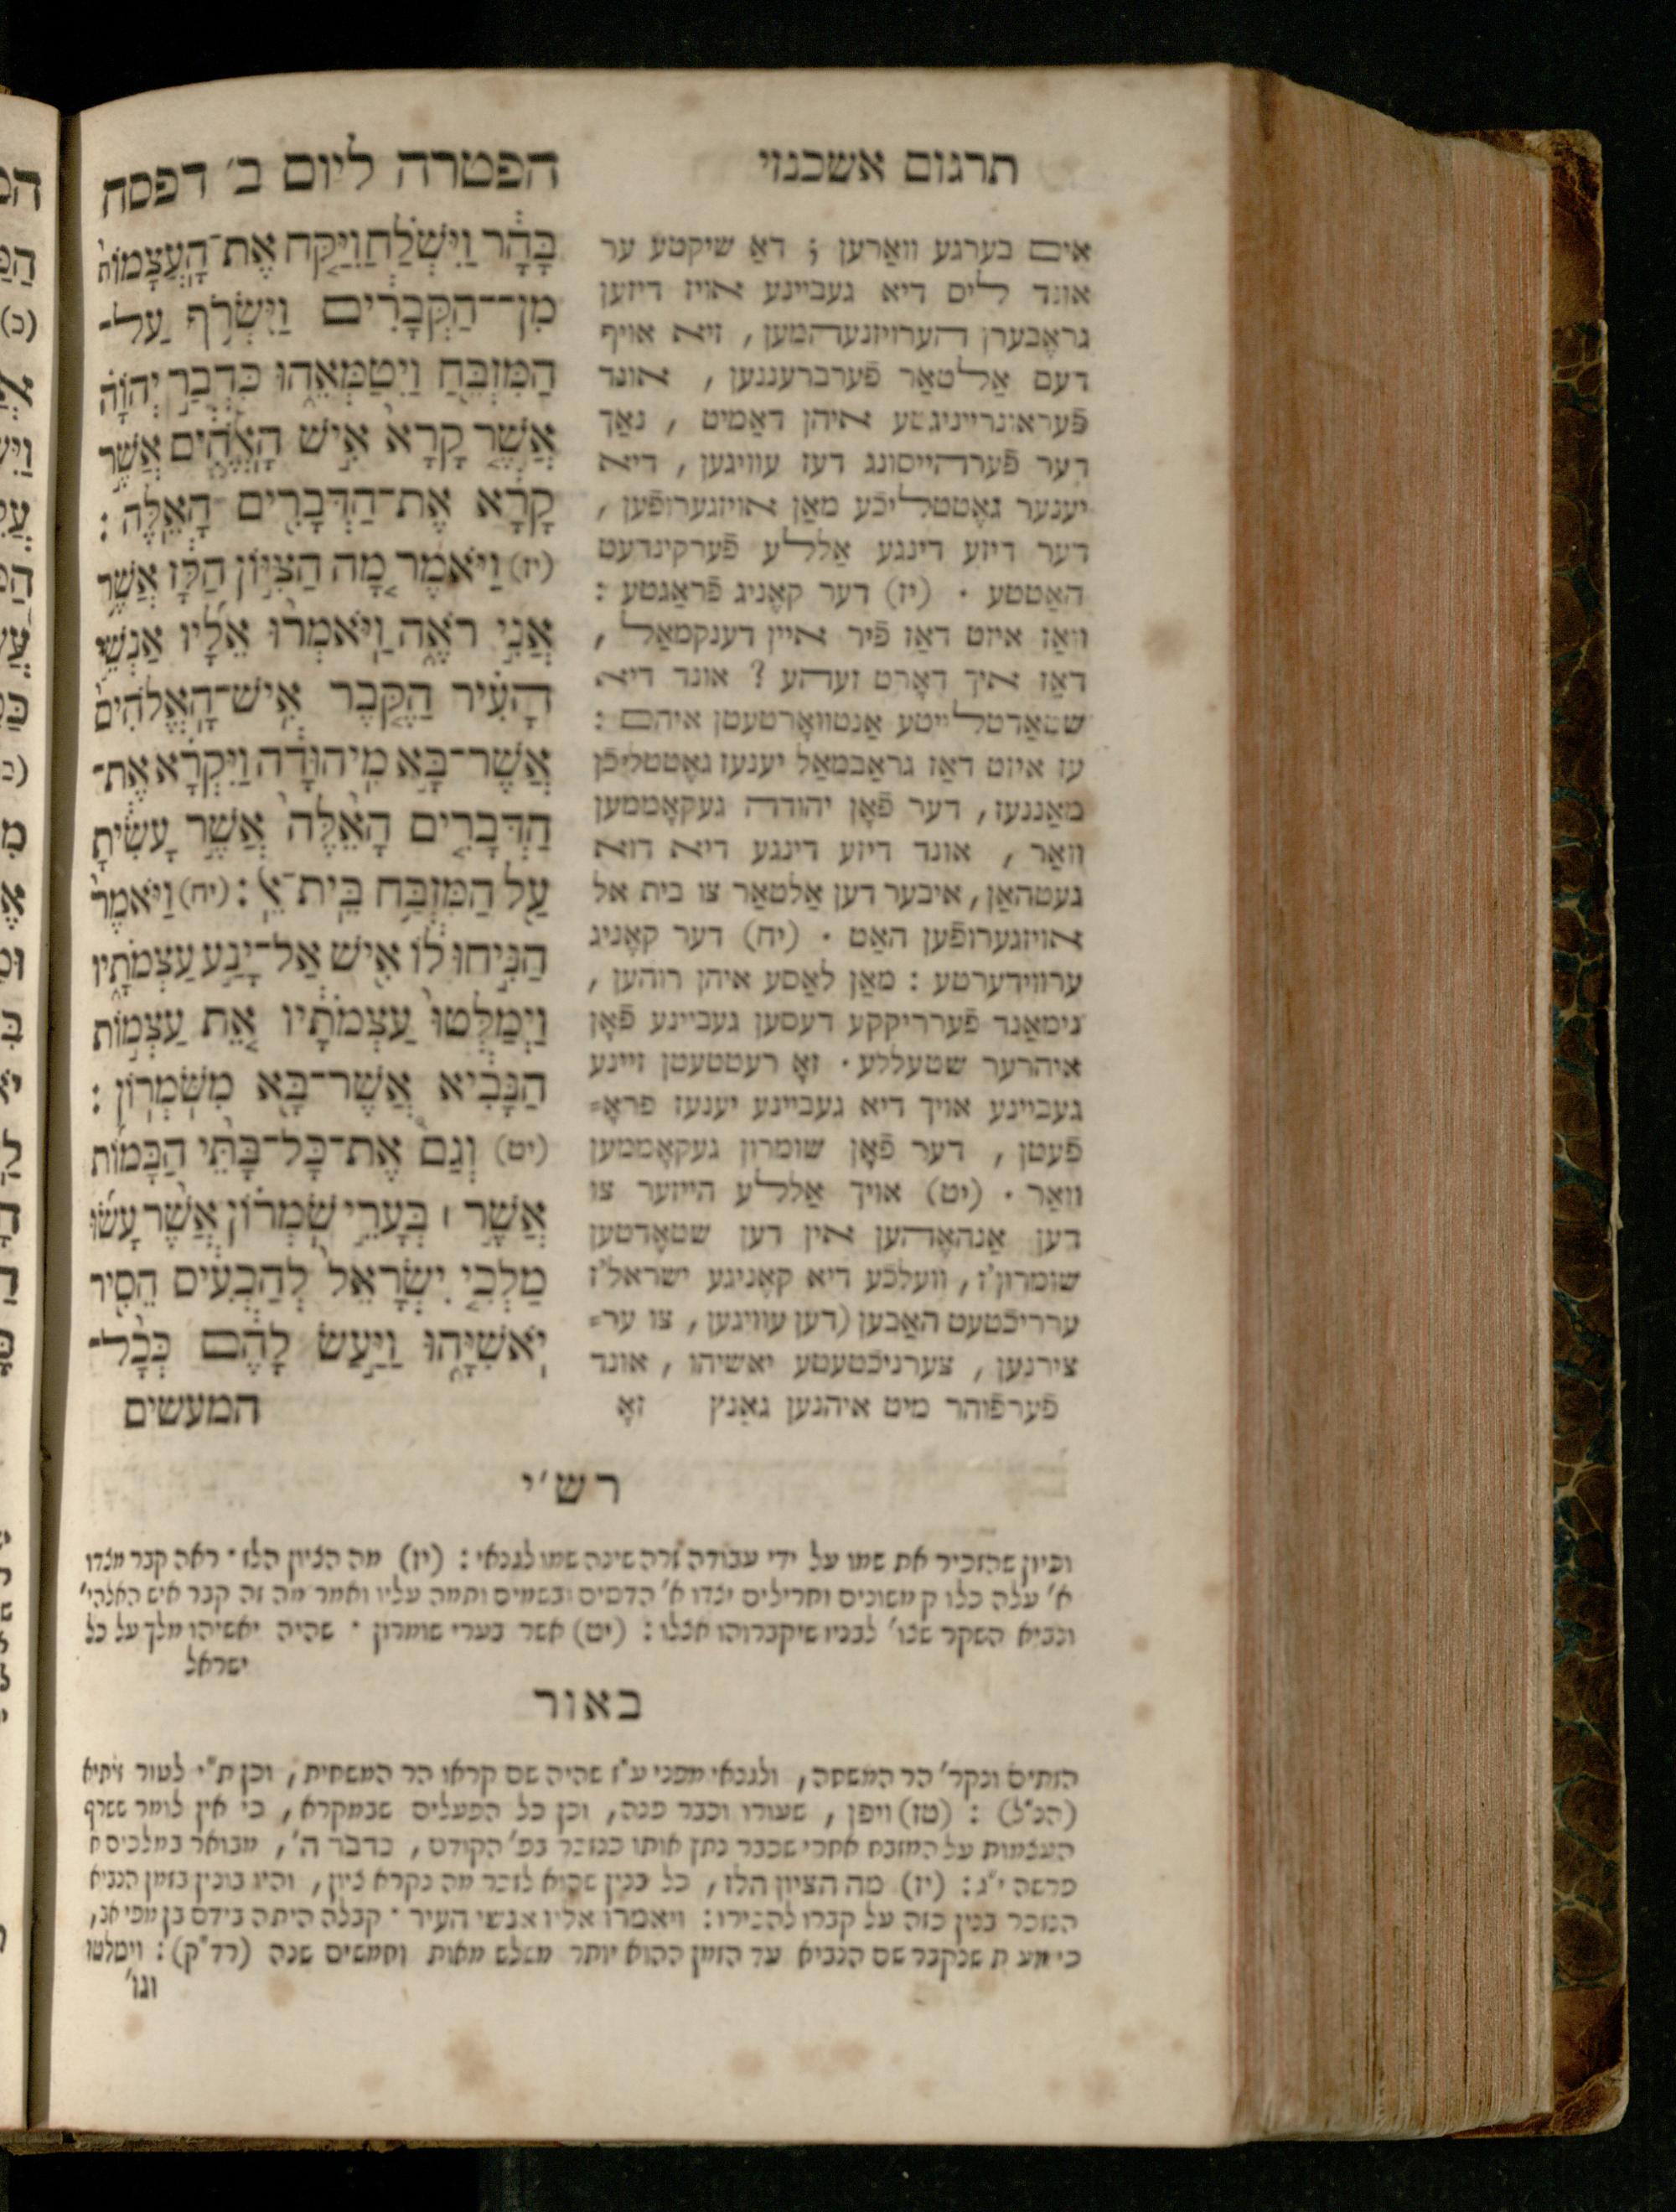 תרגום אשכנזי
הפטרה ליום ב׳ דפסח
אים בערגע וואַרען ; דאַ שיקטע ער
אונד ליס דיא געביינע אויז דיזען
גראָבערן הערויזנעהמען , זיא אויף
דעם אַלטאַר פֿערברעננען , אונד
פֿעראונרייניגטע איהן דאַמיט , נאַך
דער פֿערהייסונג דעז עוויגען , דיא
יענער גאָטטליכֿע מאַן אויזגערופֿען ,
דער דיזע דינגע אַללע פֿערקינדעט
האַטטע . (יז) דער קאָניג פֿראַגטע :
וואַז איזט דאַז פֿיר איין דענקמאַל ,
דאַז איך דאָרט זעהע ? אונד דיא
שטאַדטלייטע אַנטוואָרטעטן איהם :
עז איזט דאַז גראַבמאַל יענעז גאָטטליכֿן
מאַננעז , דער פֿאָן יהודה געקאָממען
וואַר , אונד דיזע דינגע דיא דוא
געטהאַן , איבער דען אַלטאַר צו בית אל
אויזגערופֿען האַט . (יח) דער קאָניג
ערווידערטע : מאַן לאַסע איהן רוהען ,
נימאַנד פֿערריקקע דעסען געביינע פֿאָן
איהרער שטעללע . זאָ רעטטעטן זיינע
געביינע אויך דיא געביינע יענעז פראָ=
פֿעטן , דער פֿאָן שומרון געקאָממען
וואַר . (יט) אויך אַללע הייזער צו
דען אַנהאָהען אין דען שטאָדטען
שומרון'ז , וועלכֿע דיא קאָניגע ישראל'ז
עрריכֿטעט האַבען (דען עוויגען , צו ער=
צירנען , צערניכֿטעטע יאשיהו , אונד
פֿערפֿוהר מיט איהנען גאַנץ זאָ
בָּהָר וַיִּשְׁלַח וַיִּקַּח אֶת־הָעֲצָמוֹת
מִן־הַקְּבָרִים וַיִּשְׂרֹף עַל־
הַמִּזְבֵּחַ וַיְטַמְּאֵהוּ כִּדְבַר יְהוָֹה
אֲשֶׁר קָרָא אִישׁ הָאֱלֹהִים אֲשֶׁר
קָרָא אֶת־הַדְּבָרִים הָאֵלֶּה :
(יז) וַיֹּאמֶר מָה הַצִּיּוּן הַלָּז אֲשֶׁר
אֲנִי רֹאֶה וַיֹּאמְרוּ אֵלָיו אַנְשֵׁי
הָעִיר הַקֶּבֶר אִישׁ־הָאֱלֹהִים
אֲשֶׁר־בָּא מִיהוּדָה וַיִּקְרָא אֶת־
הַדְּבָרִים הָאֵלֶּה אֲשֶׁר עָשִׂיתָ
עַל הַמִּזְבַּח בֵּית־אֵל : (יח) וַיֹּאמֶר
הַנִּיחוּ לוֹ אִישׁ אַל־יָנַע עַצְמֹתָיו
וַיְמַלְּטוּ עַצְמֹתָיו אֵת עַצְמוֹת
הַנָּבִיא אֲשֶׁר־בָּא מִשֹּׁמְרוֹן :
(יט) וְגַם אֶת־כָּל־בָּתֵּי הַבָּמוֹת
אֲשֶׁר ׀ בְּעָרֵי שֹׁמְרוֹן אֲשֶׁר עָשׂוּ
מַלְכֵי יִשְׂרָאֵל לְהַכְעִים הֵסִיר
יֹאשִׁיָּהוּ וַיַּעַשׂ לָהֶם כְּכָל־
המעשים
רש״י
וכיון שהזכיר את שמו על ידי עבודה זרה שינה שמו לגנאי : (יז) מה הציון הלז · ראה קבר מצדו
א׳ עלה כלו קמשונים וחרולים יצדו א׳ הדסים ובשמים ותמה עליו ואמר מה זה קבר איש האלהי׳
ונביא השקר שצו׳ לבניו שיקברוהו אצלו : (יט) אשר בערי שומרון · שהיה יאשיהו מלך על כל
ישראל
באור
הזתים ונקר׳ הר המשחה , ולגנאי מפני ע״ז שהיה שם קראו הר המשחית , וכן ת״י לטור זיתיא
(הנ״ל) : (טז) ויפן , שעורו וכבר פנה , וכן כל הפעלים שבמקרא , כי אין לומר ששרף
העצמות על המזבח אחרי שכבר נתץ אותו כנזכר בפ׳ הקודם , כדבר ה׳ , מבואר במלכים א
פרשה י״ג : (יז) מה הציון הלז , כל בנין שהוא לזכר מה נקרא ציון , והיו בונין בזמן הנביא
הנזכר בנין כזה על קברו להכירו : ויאמרו אליו אנשי העיר · קבלה היתה בידם בן מפי אב ,
כי מעת שנקבר שם הנביא עד הזמן ההוא יותר משלש מאות וחמשים שנה (רד״ק) : וימלטו
וגו׳